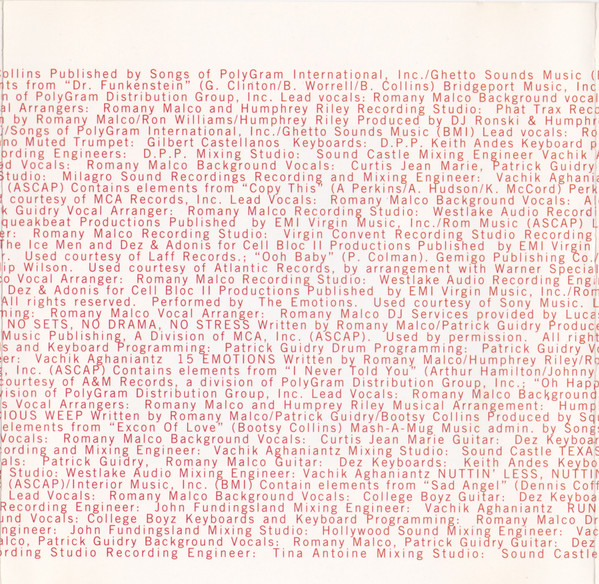 Collins Published by Songs of PolyGram International, Inc./Ghetto Sounds Music (
nts from "Dr. Funkenstein" (G. Clinton/B. Worrell/B. Collins) Bridgeport Music, Inc
n of PolyGram Distribution Group, Inc. Lead vocals: Romany Malco Background vocal
al Arrangers: Romany Malco and Humphrey Riley Recording Studio: Phat Trax Reco
n by Romany Malco/Ron Williams/Humphrey Riley Produced by DJ Ronski & Humphr
/Songs of PolyGram International, Inc./Ghetto Sounds Music (BMI) Lead vocals: Ro
no Muted Trumpet: Gilbert Castellanos Keyboards: D.P.P. Keith Andes Keyboard p
ording Engineers: D.P.P. Mixing Studio: Sound Castle Mixing Engineer Vachik A
ed Vocals: Romany Malco Background Vocals: Curtis Jean Marie, Patrick Guidry
Studio: Milagro Sound Recordings Recording and Mixing Engineer: Vachik Aghania
(ASCAP) Contains elements from "Copy This" (A Perkins/A. Hudson/K. McCord) Perk
courtesy of MCA Records, Inc. Lead Vocals: Romany Malco Background Vocals: A
k Guidry Vocal Arranger: Romany Malco Recording Studio: Westlake Audio Record
queakbeat Productions Published by EMI Virgin Music, Inc./Rom Music (ASCAP) L
er: Romany Malco Recording Studio: Virgin Convent Recording Studio Recording
The Ice Men and Dez & Adonis for Cell Bloc II Productions Published by EMI Virgin
r. Used courtesy of Laff Records.; "Ooh Baby" (P. Colman). Gemigo Publishing Co./
lip Wilson. Used courtesy of Atlantic Records, by arrangement with Warner Special
o Vocal Arranger: Romany Malco Recording Studio: Westlake Audio Recording Eng
Dez & Adonis for Cell Bloc II Productions Published by EMI Virgin Music, Inc./Rom
All rights reserved. Performed by The Emotions. Used courtesy of Sony Music. L
ming: Romany Malco Vocal Arranger: Romany Malco DJ Services provided by Luca
NO SETS, NO DRAMA, NO STRESS Written by Romany Malco/Patrick Guidry Produce
Music Publishing, A Division of MCA, Inc. (ASCAP). Used by permission. All right
s and Keyboard Programming: Patrick Guidry Drum Programming: Patrick Guidry V
eer: Vachik Aghaniantz 15 EMOTIONS Written by Romany Malco/Humphrey Riley/Ro
, Inc. (ASCAP) Contains elements from "I Never Told You" (Arthur Hamilton/Johnny
courtesy of A&M Records, a division of PolyGram Distribution Group, Inc.; "Oh Happ
vision of PolyGram Distribution Group, Inc. Lead Vocals: Romany Malco Background
s Vocal Arrangers: Romany Malco and Humprey Riley Musical Arrangement: Hump
IOUS WEEP Written by Romany Malco/Patrick Guidry/Bootsy Collins Produced by Squ
elements from "Excon Of Love" (Bootsy Collins) Mash-A-Mug Music admin. by Songs
Vocals: Romany Malco Background Vocals: Curtis Jean Marie Guitar: Dez Keyboar
ording and Mixing Engineer: Vachik Aghaniantz Mixing Studio: Sound Castle TEXAS
als: Patrick Guidry, Romany Malco Guitar: Dez Keyboards: Keith Andes Keybo
r Studio: Westlake Audio Mixing Engineer: Vachik Aghaniantz NUTTIN' LESS, NUTTIN
(ASCAP)/Interior Music, Inc. (BMI) Contain elements from "Sad Angel" (Dennis Coff
Lead Vocals: Romany Malco Background Vocals: College Boyz Guitar: Dez Keyboa
Recording Engineer: John Fundingsland Mixing Engineer: Vachik Aghaniantz RUN
und Vocals: College Boyz Keyboards and Keyboard Programming: Romany Malco Dr
ngineer: John Fundingsland Mixing Studio: Hollywood Sound Mixing Engineer: Vac
alco, Patrick Guidry Background Vocals: Romany Malco, Patrick Guidry Guitar: Dez
ording Studio Recording Engineer: Tina Antoine Mixing Studio: Sound Castle